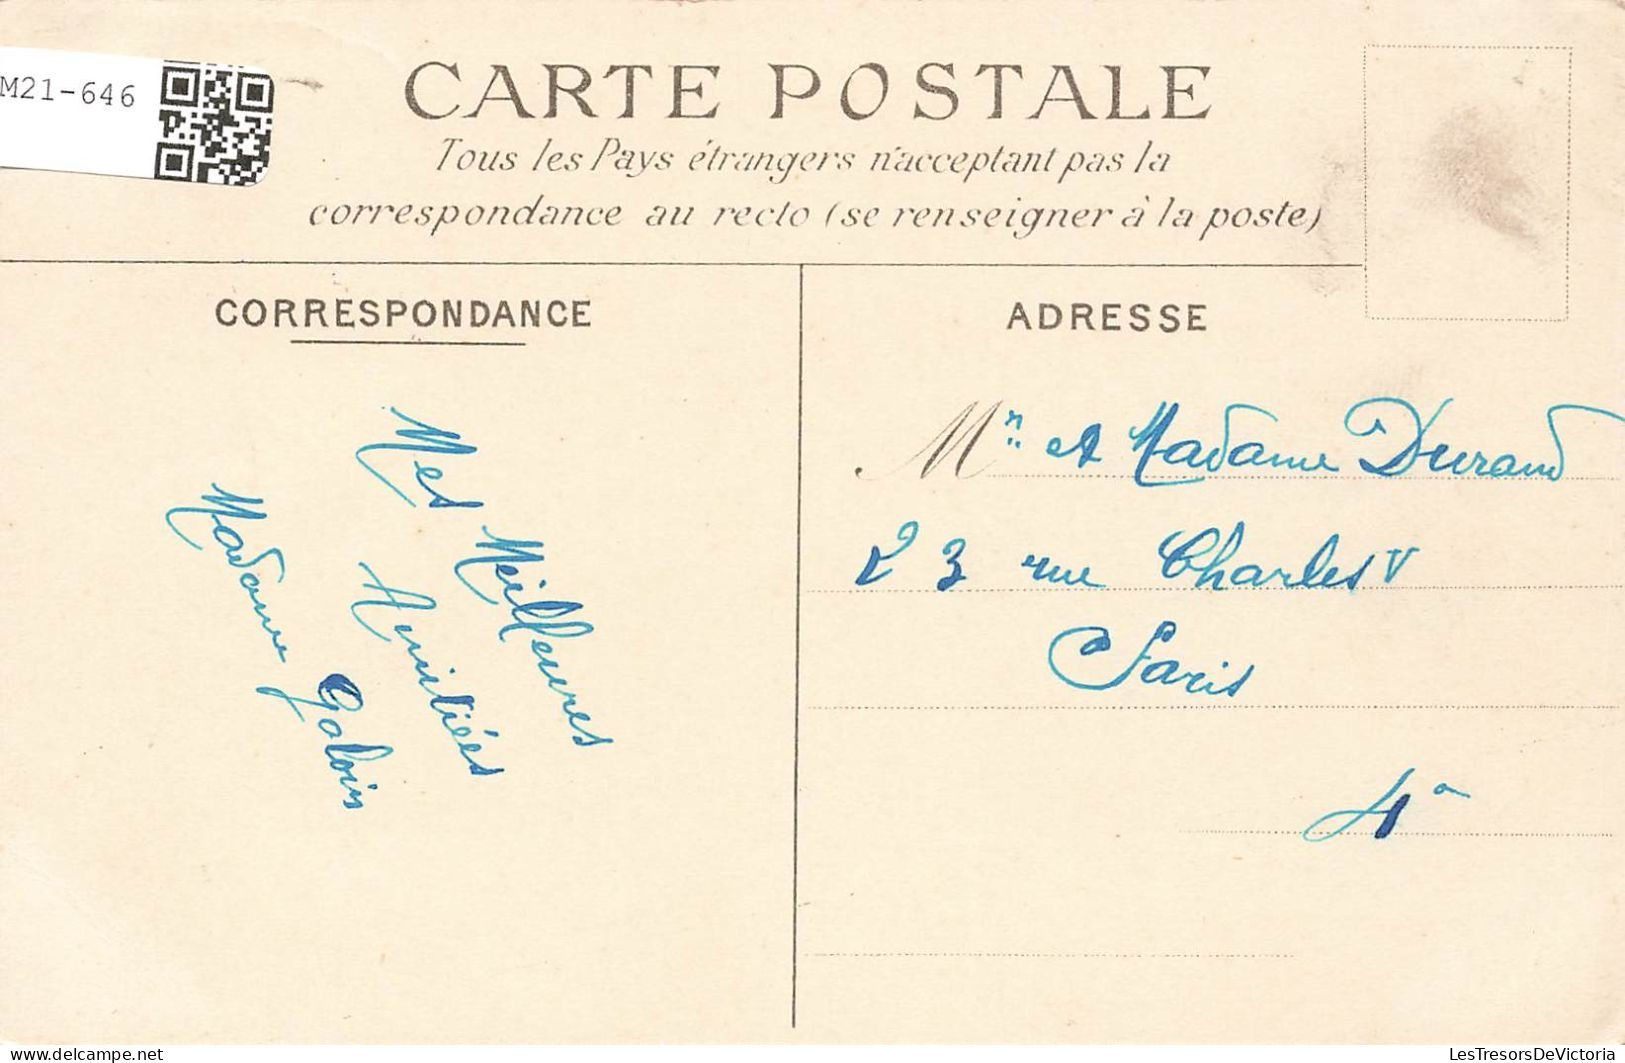 M21-646
CARTE POSTALE
Tous les Pays étrangers n'acceptant pas la
correspondance au recto (se renseigner à la poste)
CORRESPONDANCE
Mes Meilleures
Amitiées
Madame Galoin
ADRESSE
Mr et Madame Durand
23 rue Charles V
Paris
4e
delcampe.net
LesTresorsDeVictoria